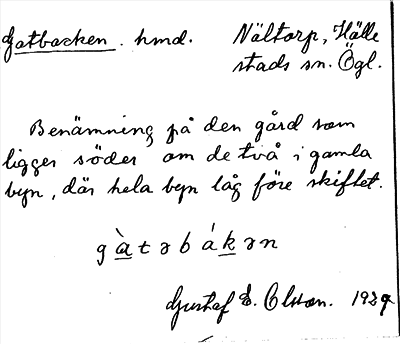 Gatbacken. hmd. Nältorp, Hälle
stads sn. Ögl.
Benämning på den gård som
ligger söder om de två i gamla
byn, där hela byn låg före skiftet.
g à t ə b á k ə n
Gustaf E. Olsson. 1929